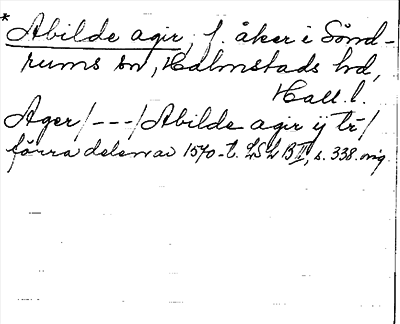 * Abilde agir, f. åker i Sönd-
rums sn, Halmstads hd,
Hall. l.
Ager /---/ Abilde agir ij tr /
förra delen av 1570-t. LSL B II, s. 338. orig.